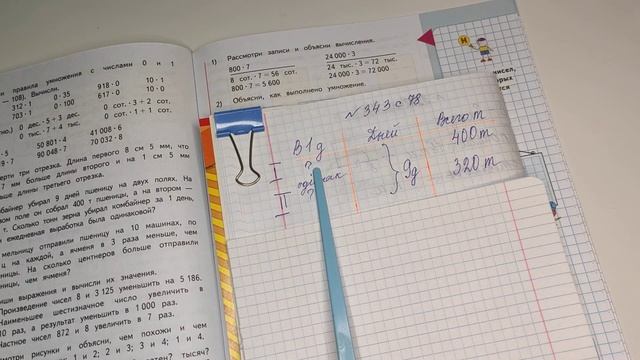 и правила умножения с числами 0 и 1
108). Вычисли.
312 · 1 0 · 35 918 · 0 10 · 1
703 · 1 0 · 100 617 · 0 10 · 0
0 дес. · 5 + 3 дес. 0 сот. · 3 + 2 сот.
0 тыс. · 7 + 4 тыс. 0 сот. · 1 + 1 сот.
50 801 · 4 41 008 · 6
90 048 · 7 70 032 · 8
три отрезка. Длина первого 8 см 5 мм, что
7 мм больше длины второго и на 1 см 5 мм
длины третьего отрезка.
убирал 9 дней пшеницу на двух полях. На
поле он собрал 400 т пшеницы, а на втором —
т. Сколько тонн зерна убирал комбайнер за 1 день,
ежедневная выработка была одинаковой?
мельницу отправили пшеницу на 10 машинах, по
ц на каждой, а ячменя в 3 раза меньше, чем
На сколько центнеров больше отправили
чем ячменя?
выражения и вычисли их значения.
Произведение чисел 8 и 3 125 уменьшить на 5 186.
Наименьшее шестизначное число увеличить в
10 раз, а результат уменьшить в 1 000 раз.
Частное чисел 872 и 8 увеличить в 7 раз.
рисунки и объясни, чем похожи и чем
1 и 2; 2 и 3; 3 и 4; 1 и 4.
тысяч?
1) Рассмотри записи и объясни вычисления.
800 · 7 24 000 · 3
8 сот. · 7 = 56 сот. 24 тыс. · 3 = 72 тыс.
800 · 7 = 5 600 24 000 · 3 = 72 000
2) Объясни, как выполнено умножение.
№ 343 с 78
В 1 д Дней Всего т
I ? 400 т
одинак } 9 д
II ? 320 т